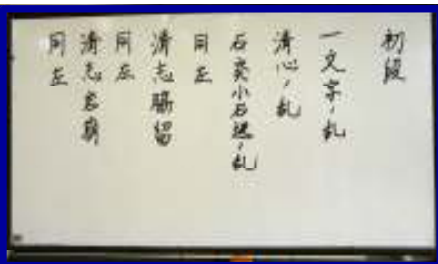 初段
一文字ノ乱
清心ノ乱
石突小石返ノ乱
同左
清志脇留
同左
清志
同左